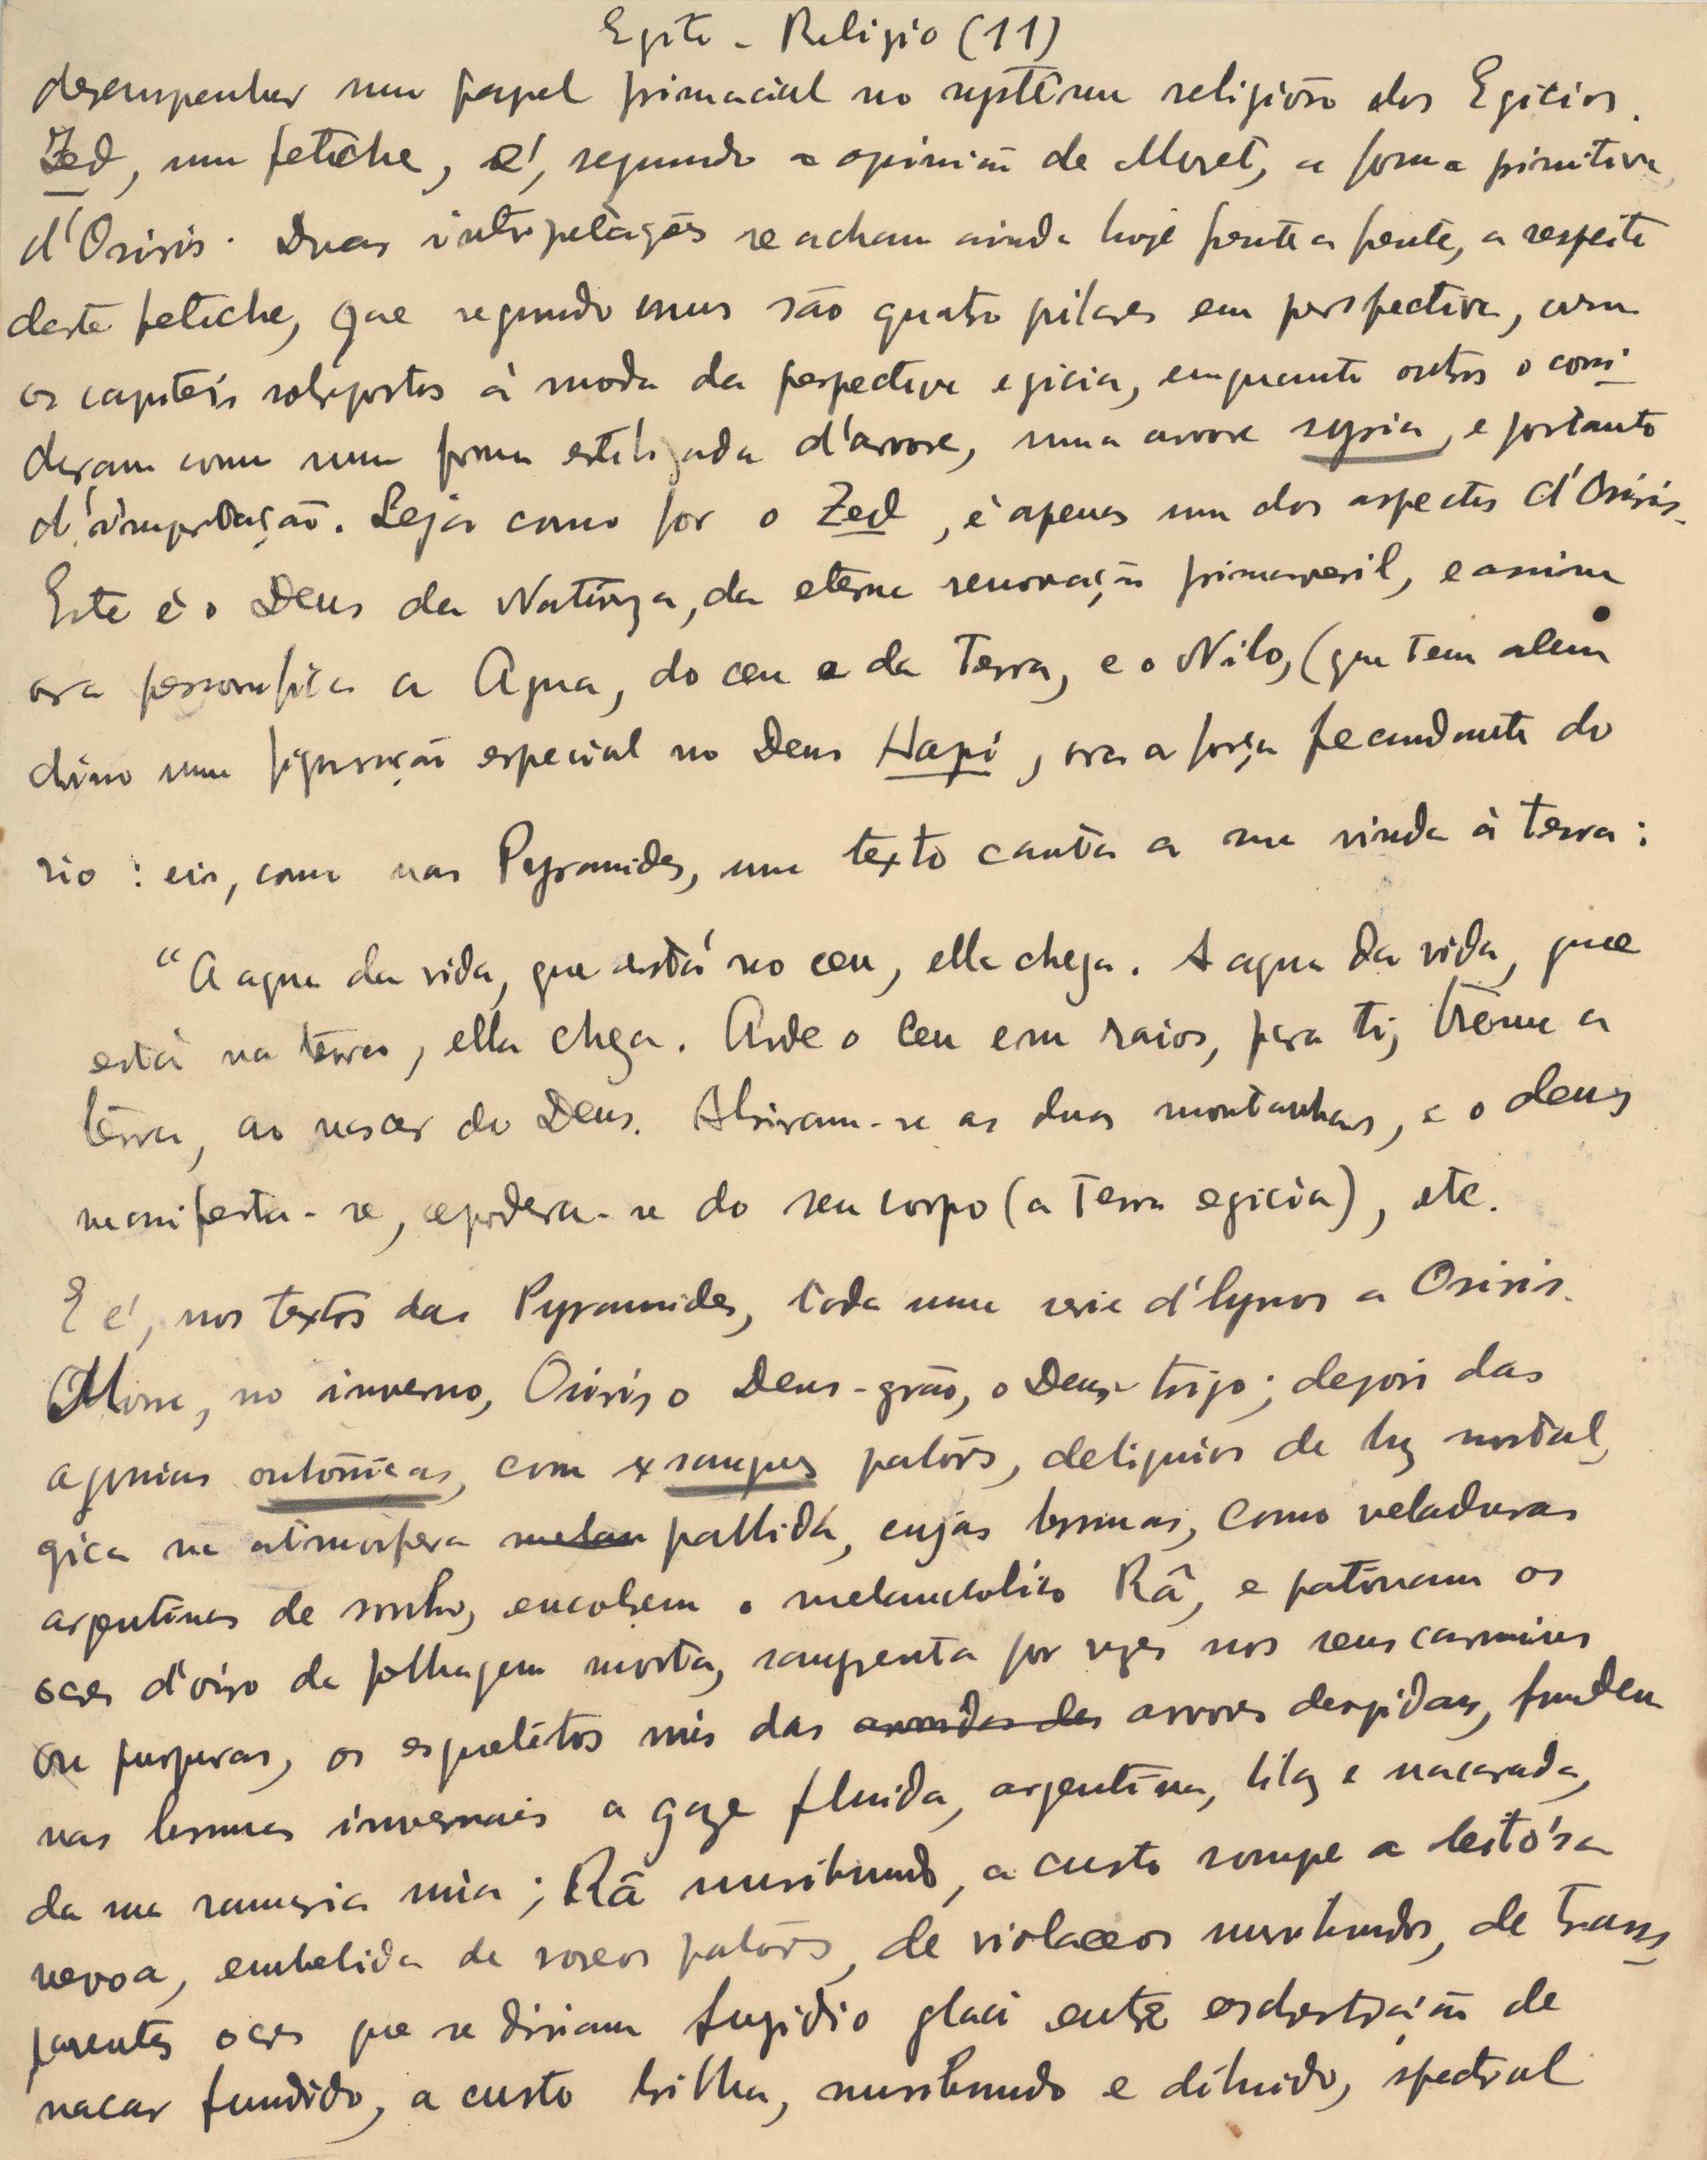 Egito - Religio (11)
desempenhar um papel primacial no systêma religiôso dos Egicios.
Zed, um fetiche, é, segundo a opinião de Moret, a forma primitiva
d'Osiris. Duas interpetações se acham ainda hoje frente a frente, a respeito
deste fetiche, que segundo unus são quatro pilares em perspectiva, com
os capiteis sobrepostos à moda da perspectiva egicia, emquanto outros o consi-
deram como uma forma estilizada d'arvore, uma arvore syria, e portanto
d'importação. Seja como for o Zed, é apenas um dos aspectos d'Osiris.
Este é o Deus da Natureza, da eterna renovação primaveril, e assim
ora personifica a Agua, do ceu e da Terra, e o Nilo, (que tem alem
disso uma figuração especial no Deus Hapi, ora a força fecundante do
rio : eis, como nas Pyramides, um texto canta a sua vinda à terra :
"A agua da vida, que está no ceu, ella chega. A agua da vida, que
está na terra, ella chega. Arde o Ceu em raios, para ti, treme a
terra, ao nascer do Deus. Abriram-se as duas montanhas, e o deus
manifesta-se, apodera-se do seu corpo (a Terra egicia), etc.
E é, nos textos das Pyramides, toda uma serie d'hynos a Osiris.
Morre, no inverno, Osiris o Deus-grão, o Deus-trigo; depois das
agonias outônicas, com exsangues palôrs, deliquios de luz nostal,
gica na atmosfera melan pallida, cujas brumas, como veladuras
argentinas de sonho, encobrem o melancolico Râ, e patinam os
ocres d'oiro da folhagem morta, sangrenta por vezes nos seus carmins
ou purpuras, os esqueletos nús das arvores despidas, fundem
nas brumas invernais a gaze fluida, argentina, lilaz e nacarada,
da sua ramaria núa; Râ muribundo, a custo rompe a leitósa
nevoa, embebida de roseos palôrs, de violaceos muribundos, de trans-
parentes ocres que se diriam fugidio glaci entre orchestração de
nacar fundido, a custo brilha, muribundo e diluido, spectral